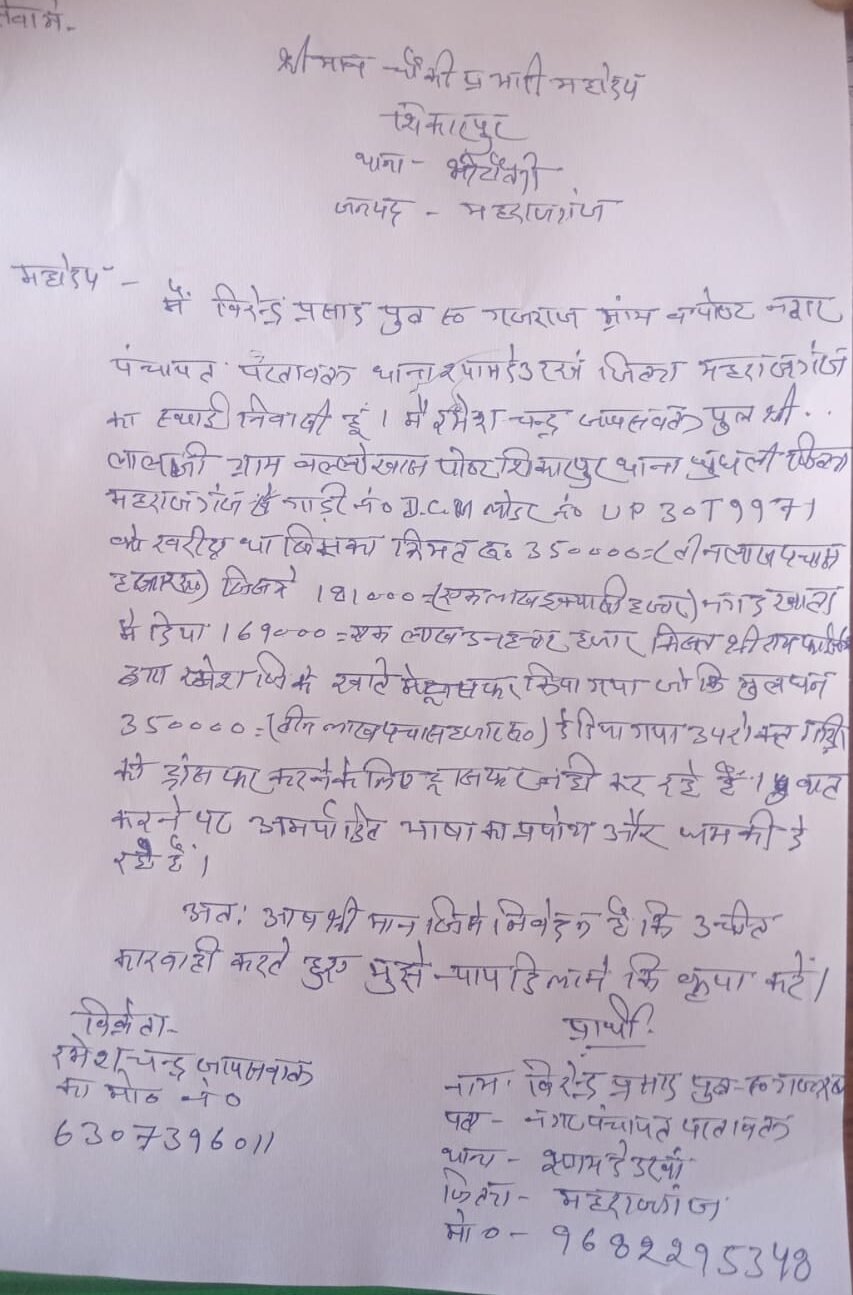 सेवा में.
श्रीमान चौकी प्रभारी महोदय
शिकारपुर
थाना -
जनपद - महराजगंज
महोदय -
मैं विरेन्द्र प्रसाद पुत्र स्व गजराज ग्राम व पोस्ट नगर
पंचायत परतावल थाना श्यामदेउरवां जिला महराजगंज
का स्थाई निवासी हूं । मैं रमेश चन्द्र जायसवाल पुत्र श्री . .
लालजी ग्राम पोस्ट शिकारपुर थाना घुघली जिला
महराजगंज से गाड़ी नं० D.C.M लोडर नं० UP 30T 9971
को खरीदा था जिसका किमत रू० 350000=(तीन लाख पचास
हजार रू०) जिसमे 181000=(एक लाख इक्यासी हजार) नगद खाता
मे दिया 169000=एक लाख उनहत्तर हजार श्री राम
द्वारा रमेश जि के खाते मे किया गया जो कि मुलधन
350000=(तीन लाख पचास हजार रू०) दे दिया गया उपरोक्त गाड़ी
को ट्रांसफर करने के लिए ट्रांसफर नही कर रहे हैं । बात
करने पर अमर्यादित भाषा का प्रयोग और धमकी दे
रहे हैं ।
अतः आप श्री मान जि से निवेदन है कि उचीत
कारवाही करते हुए मुझे न्याय दिलाने कि कृपा करें।
विक्रेता-
रमेश चन्द्र जायसवाल
का मो० नं०
6307396011
प्रार्थी:
नाम: विरेन्द्र प्रसाद पुत्र-स्व गजराज
पता - नगर पंचायत परतावल
थाना - श्यामदेउरवां
जिला - महराजगंज
मो० - 9682295348